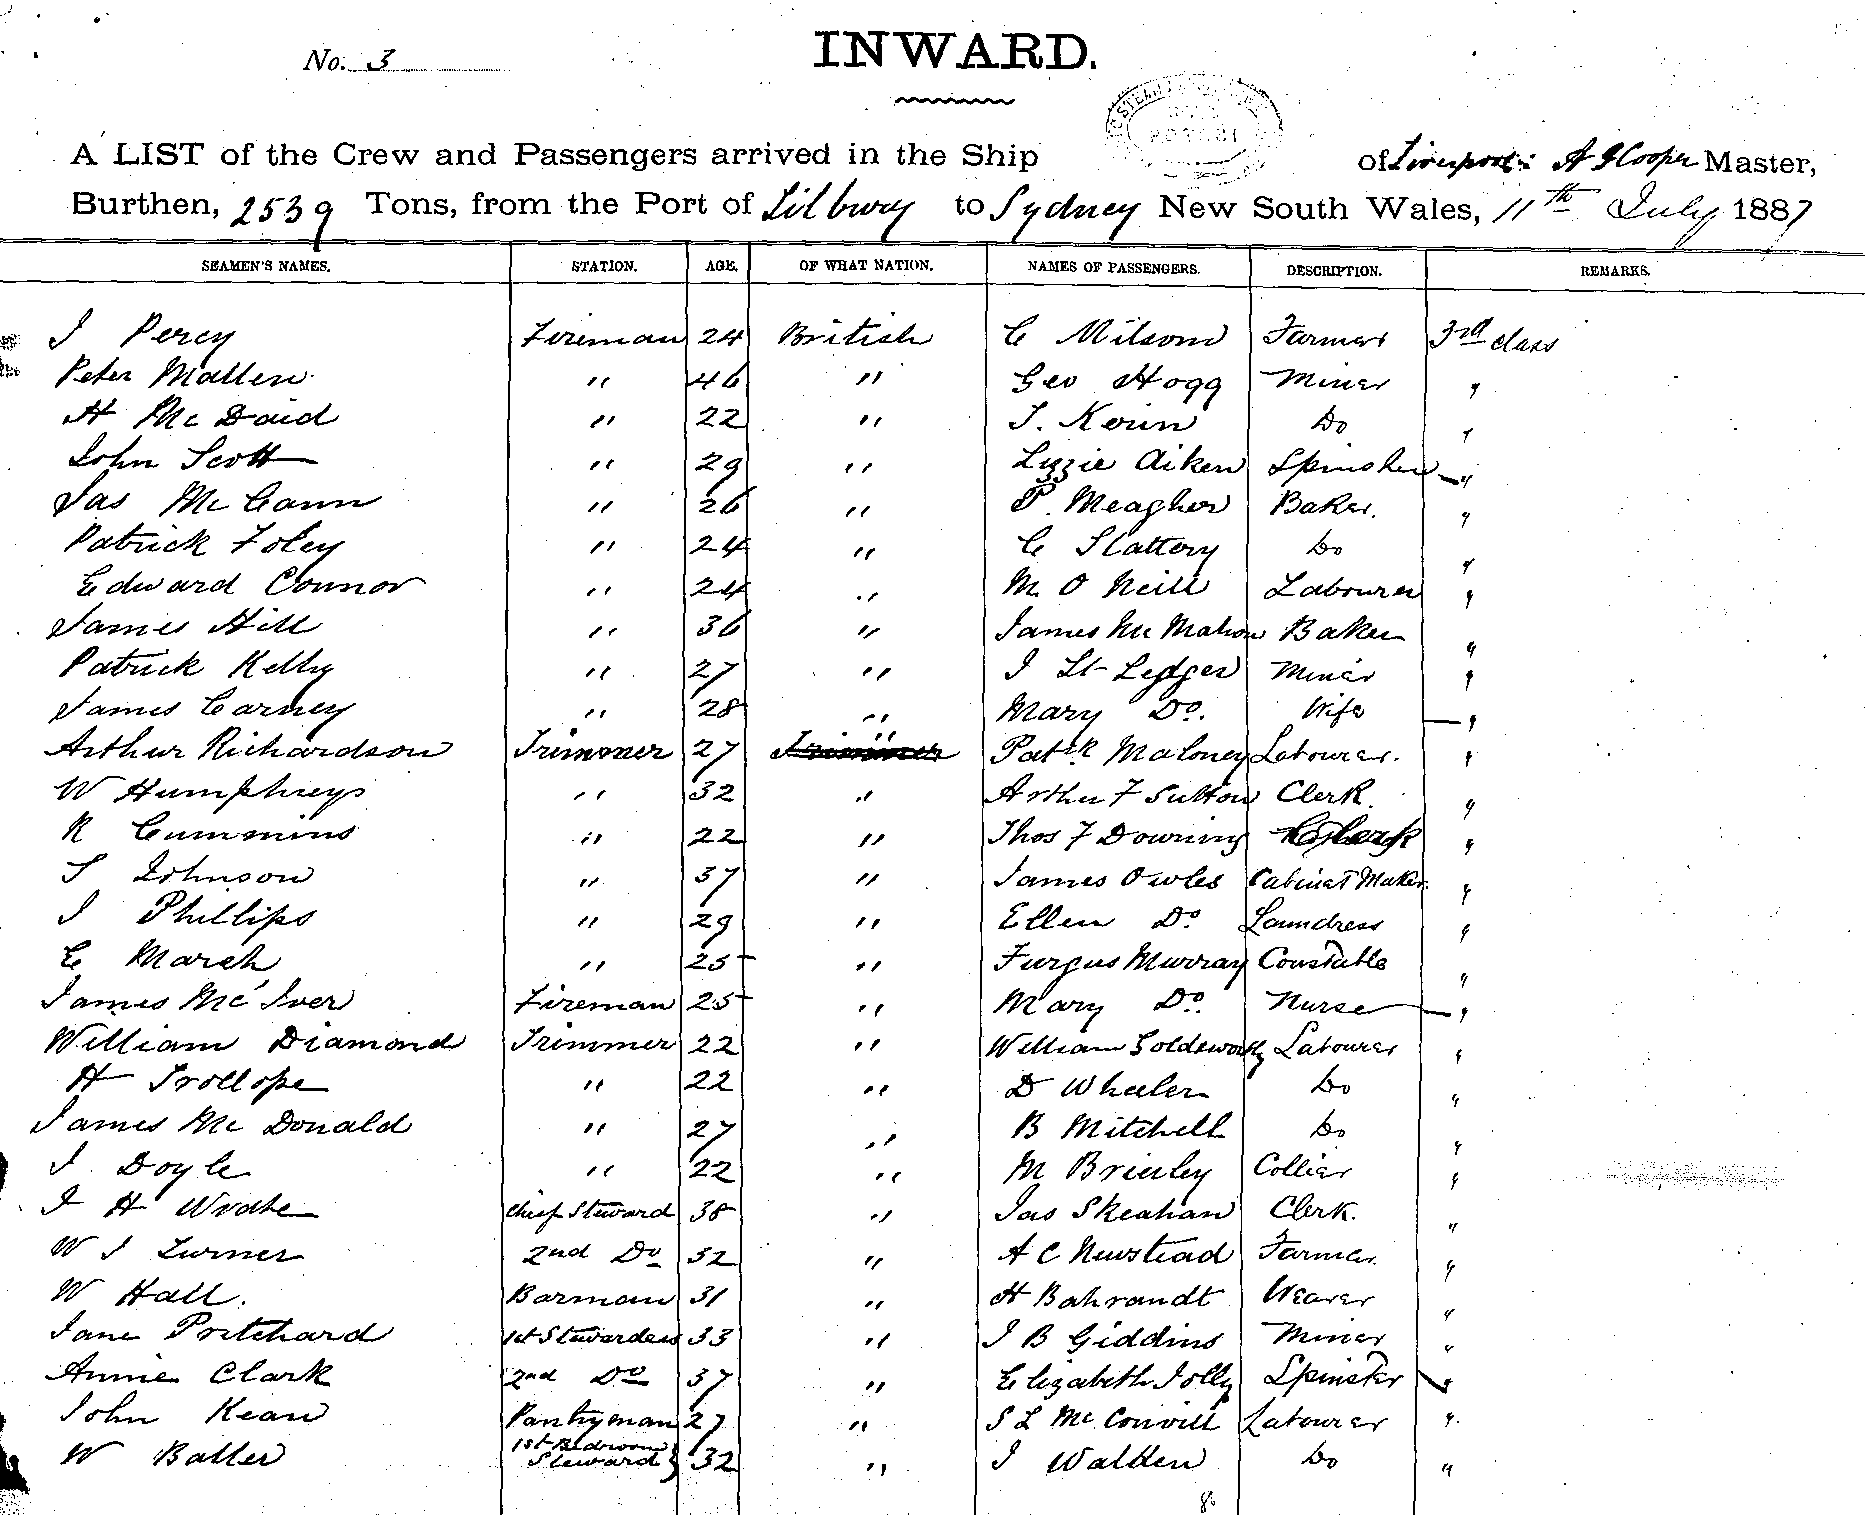 No. 3
INWARD.
A LIST of the Crew and Passengers arrived in the Ship of Liverpool: A J Cooper Master,
Burthen, 2539 Tons, from the Port of Tilbury to Sydney New South Wales, 11th July 1887
SEAMEN'S NAMES. STATION. AGE. OF WHAT NATION. NAMES OF PASSENGERS. DESCRIPTION. REMARKS.
J Percy Fireman 24 British C Milsom Farmer 3rd class
Peter Mallen " 46 " Geo Hogg Miner "
H McDaid " 22 " T. Kevin Do "
John Scott " 29 " Lizzie Aiken Spinster "
Jas McCann " 26 " P. Meagher Baker. "
Patrick Foley " 24 " C Slattery Do "
Edward Connor " 24 " M O Neill Labourer "
James Hill " 36 " James McMahon Baker "
Patrick Kelly " 27 " J St Ledger Miner "
James Carney " 28 " Mary Do. Wife "
Arthur Richardson Trimmer 27 " Patk Maloney Labourer. "
W Humphreys " 32 " Arthur F Sutton Clerk. "
R Cummins " 22 " Thos F Downing Clerk "
T Johnson " 37 " James Owles Cabinet Maker "
J Phillips " 29 " Ellen Do. Laundress "
C March " 25 " Furgus Murray Constable "
James McIver Fireman 25 " Mary Do. Nurse "
William Diamond Trimmer 22 " William Goldsworthy Labourer "
H Trollope " 22 " D Wheeler Do "
James McDonald " 27 " B Mitchell Do "
J Doyle " 22 " M Brierley Collier "
J H Chief Steward 38 " Jas Skeahan Clerk. "
W J Turner 2nd Do 32 " A C Newstead Farmer. "
W Hall. Barman 31 " H Bahrandt "
Jane Pritchard 1st Stewardess 33 " J B Giddins Miner "
Annie Clark 2nd Do 37 " Elizabeth Jolly Spinster "
John Kean Pantryman 27 " S L McConvill Labourer "
W Balter 1st Bedroom Steward } 32 " J Walden Do "